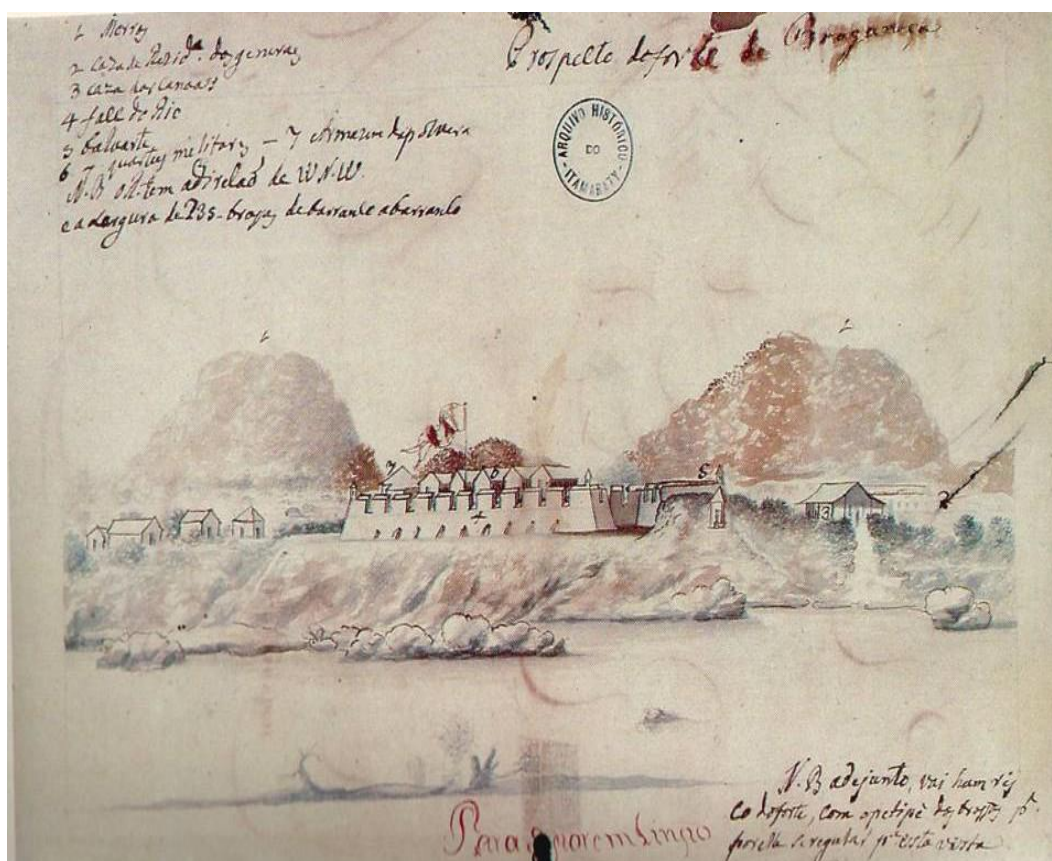 1 Morros
2 caza de Rezid.ª dos generaes
3 caza das Canoas
4 face do Rio
5 baluarte
6 quarteis militares – 7 Armazem da polvera
N.B o d. tem a direcao de WNW.
e a largura de 235 braças de barranco a barranco
Prospecto do forte de Bragança
ARQUIVO HISTÓRICO
DO
ITAMARATY
1
1
7
6
5
4
3
2
N.B adejunto, vai hum ris
co do forte, com o petipé
por elle se regular p.ª esta vista
Para